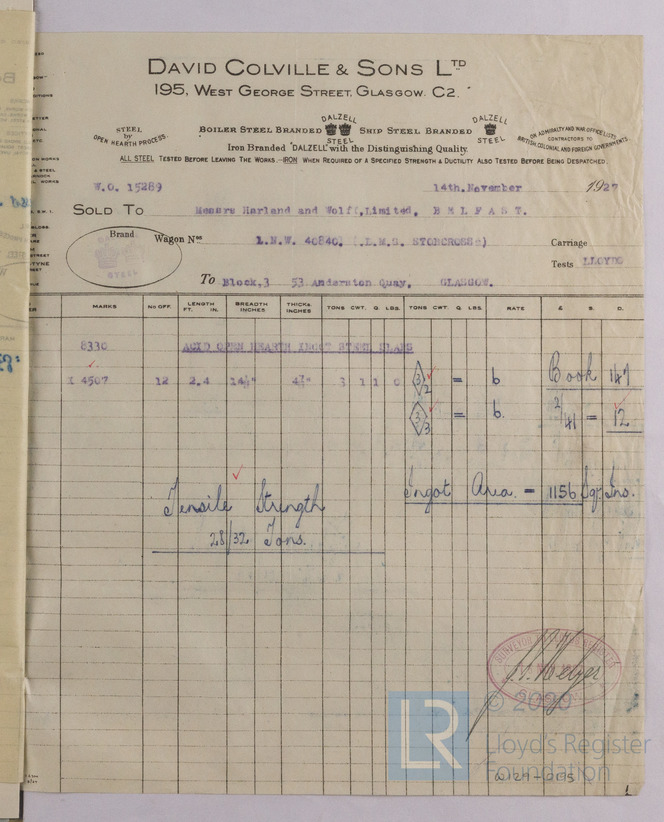 DAVID COLVILLE & SONS LTD
195, WEST GEORGE STREET, GLASGOW. C2.
STEEL by OPEN HEARTH PROCESS.
BOILER STEEL BRANDED DALZELL STEEL SHIP STEEL BRANDED DALZELL STEEL
ON ADMIRALTY AND WAR OFFICE LISTS
CONTRACTORS TO
BRITISH, COLONIAL AND FOREIGN GOVERNMENTS
Iron Branded "DALZELL" with the Distinguishing Quality.
ALL STEEL TESTED BEFORE LEAVING THE WORKS.—IRON WHEN REQUIRED OF A SPECIFIED STRENGTH & DUCTILITY ALSO TESTED BEFORE BEING DESPATCHED.
W.O. 15289 14th.November 1927
SOLD TO Messrs Harland and Wolff,Limited, B E L F A S T.
Brand
STEEL
Wagon Nos L.N.W. 40840. (L.M.S. STOBCROSS) Carriage
Tests LLOYDS
To Block,3 53 Anderston Quay, GLASGOW.
MARKS No OFF. LENGTH FT. IN. BREADTH INCHES THICK& INCHES TONS CWT. Q LBS. TONS CWT. Q LBS. RATE £ S. D.
8330 ACID OPEN HEARTH INGOT STEEL SLABS
X 4507 12 2.4 3 1 1 0 3/2 = 6 Book 147
3/3 = 6. 2/41 = 12
Tensile Strength
28/32 Tons.
Ingot Area = 1156 Sq. Ins.
© 2020
LR
Lloyd's Register
Foundation
W129-0195